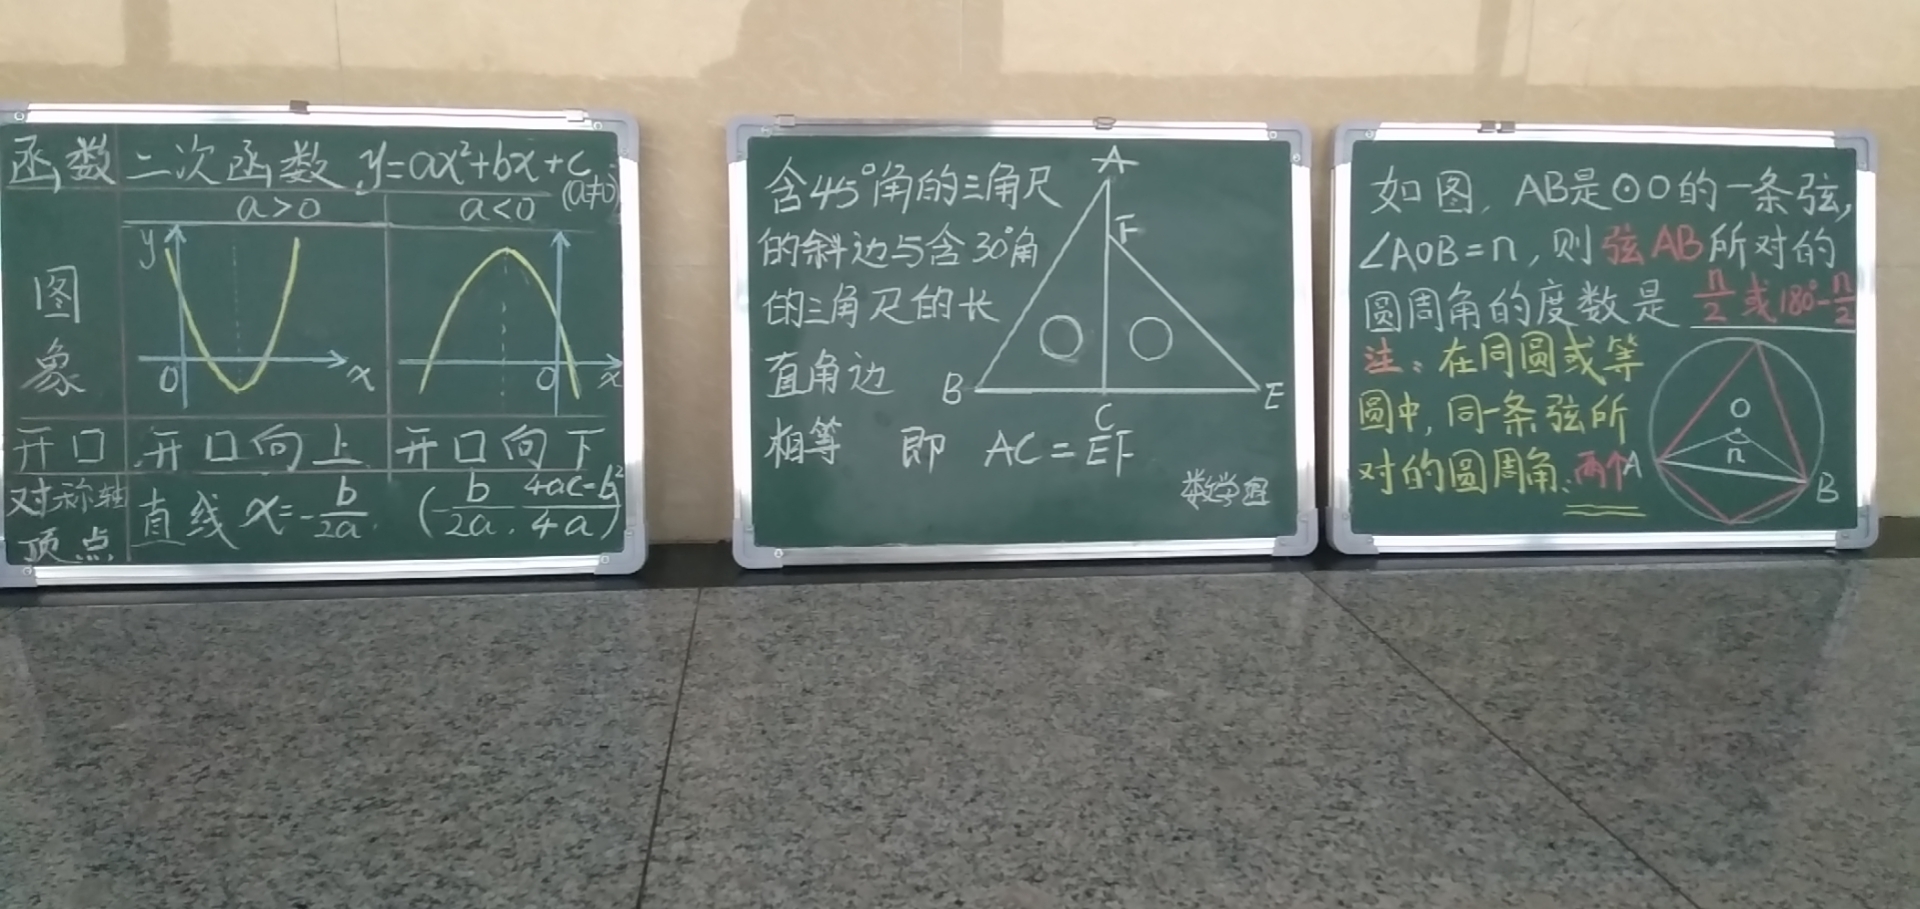 函数 二次函数 y=ax²+bx+c
(a≠0)
a>0 a<0
y
图
象
0 x 0 x
开口 开口向上 开口向下
对称轴 直线 x=-b/2a (-b/2a, 4ac-b²/4a)
顶点
含45°角的三角尺
的斜边与含30°角
的三角尺的长
直角边
相等 即 AC=EF
A
F
B C E
数学组
如图，AB是⊙O的一条弦，
∠AOB=n，则弦AB所对的
圆周角的度数是 n/2 或180°-n/2
注：在同圆或等
圆中，同一条弦所
对的圆周角：两个
O
n
A B